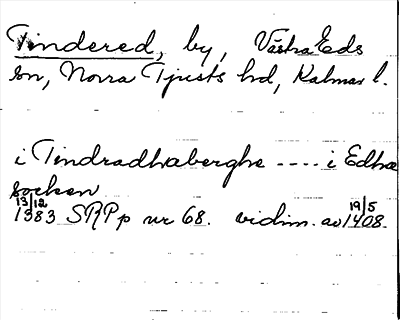 Tindered, by, Västra Eds
sn, Norra Tjusts hd, Kalmar l.
i Tindradhaberghe ---- i Edha
socken
13/12 1383 SRPp nr 68. vidim. av 19/5 1408.